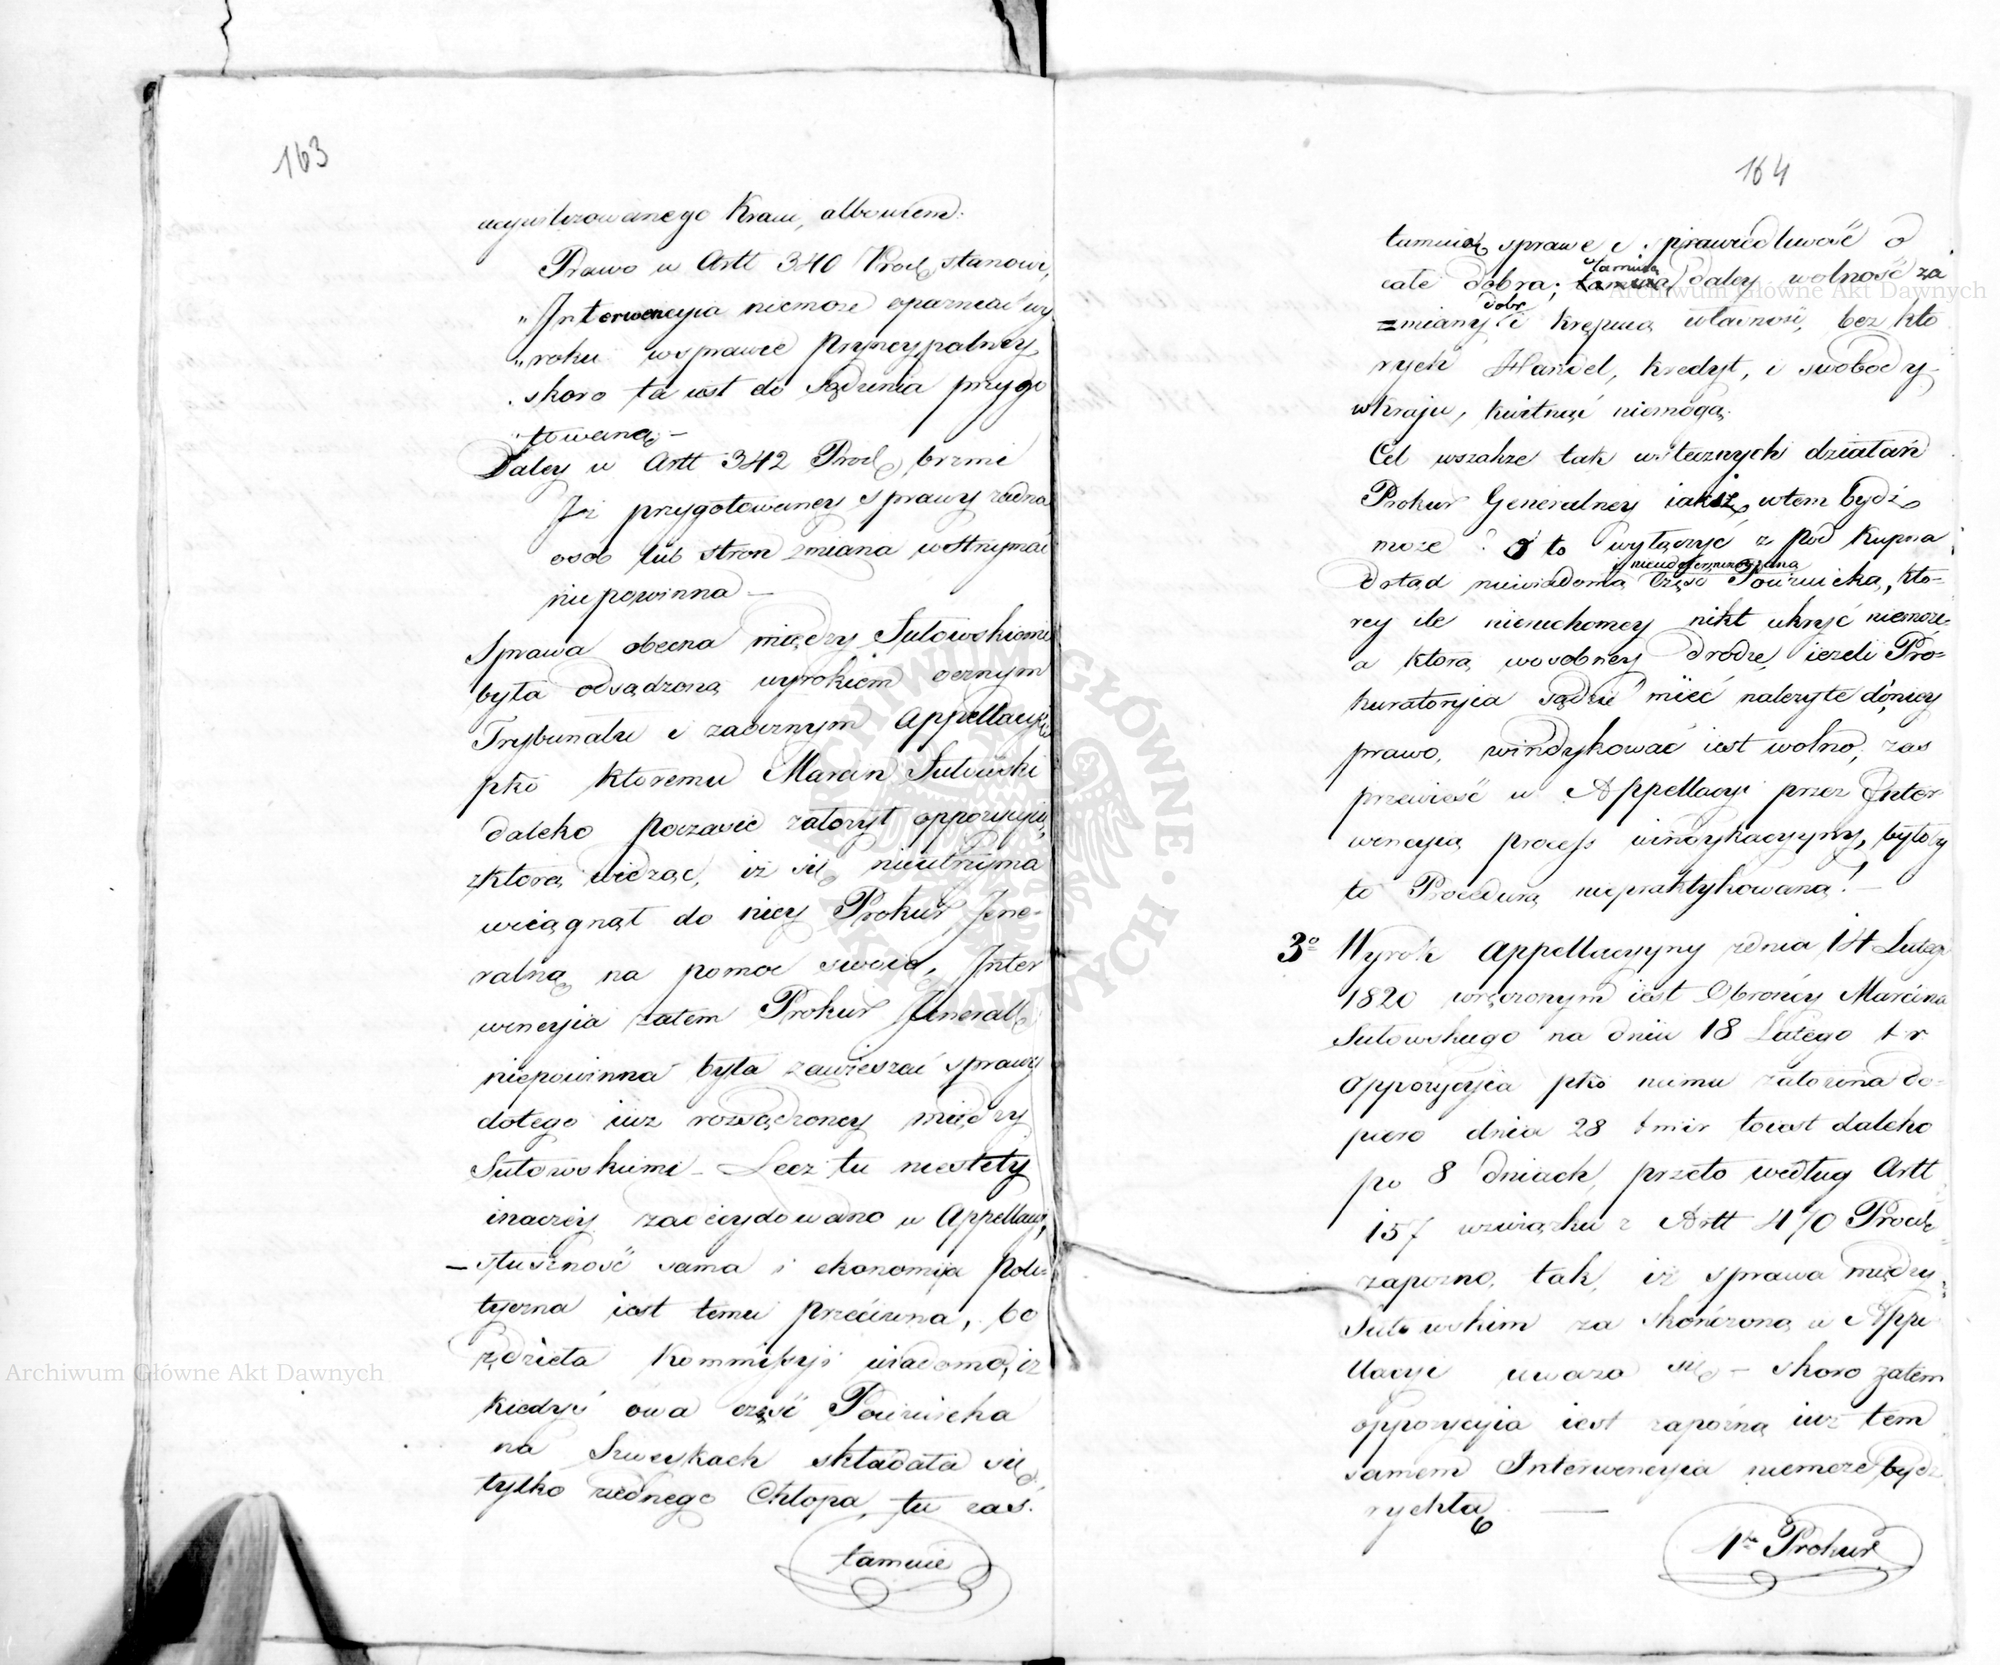 163
ucywilizowanego Kraiu, albowiem.
Prawo w Artt 340 Proc, stanowi,
„Interwencyia niemoże opózniać wy
„roku wsprawie Pryncypalney
„skoro ta iest do sądzenia przygo
„towaną –
Daley w Artt 342 Proc, brzmi
Iż przygotowaney sprawy żadna
osob lub stron zmiana wstrzymać
niepowinna –
Sprawa obecna między Sutowskiemi
była odsądzoną wyrokiem ocznym
Trybunału i zaocznym Appellacyi
pko któremu Marcin Sutowski
daleko poczasie założył oppozycyią,
zktorą widząc, iż się nieutrzyma
wciągnął do niey Prokur Jene-
ralną na pomoc swoią, Inter
wencyia zatem Prokur Jeneral
niepowinna była zawieszać sprawy
dotego iuz rozsądzoney między
Sutowskiemi – Lecz tu niestety
inaczey zadecydowano w Appellacyi,
– słuszność sama i ekonomija Poli-
tyczna iest temu przeciwna, bo
z dzieła Kommissyi wiadomo, iż
kiedyś owa część Pouiuicka
na Szweykach składała się
tylko zjednego Chłopa, tu zas.
tamuie
164
tamuią sprawę i sprawiedliwość o
całe dobra; tamuią daley wolność za
tamuią
zmiany i krępuią własność, bez kto
dobr
rych Handel, kredyt, i swobody
wkraju, kwitnąć niemogą.
Cel wszakże tak wstecznych działań
Prokur Generalney iakiż wtem bydź
może? Oto wyłączyć z pod Kupna
i nieudeterminowaną
dotąd niewiadomą część Pouiuicką, kto-
rey ile nieruchomey nikt ukryć niemoże-
a ktorą wosobney drodze, ieżeli Pro-
kuratoryia sądzi mieć należyte doniey
prawo, windykować iest wolno, zas
przenieść w Appellacyi przez Inter
wencyią process windykacyyny, byłoby
to Procedurą niepraktykowaną! –
3º Wyrok Appellacyyny zdnia 14 Lutego
1820 wręczonym iest Obrońcy Marcina
Sutowskiego na dniu 18 Lutego t r
Oppozycyia pko niemu założona do-
piero dnia 28 t mir toiest daleko
po 8 dniach, przeto według Artt
157 wzwiązku z Artt 470 Proced
zapozno, tak, iż sprawa między
Sutowskim za skończoną w Appe
llacyi uważa się – skoro zatem
oppozycyia iest zapózną iuż tem
samem Interwencyia niemoże bydz
rychłą –
1mo Prokur
Archiwum Główne Akt Dawnych
Archiwum Główne Akt Dawnych
ARCHIWUM GŁÓWNE AKT DAWNYCH